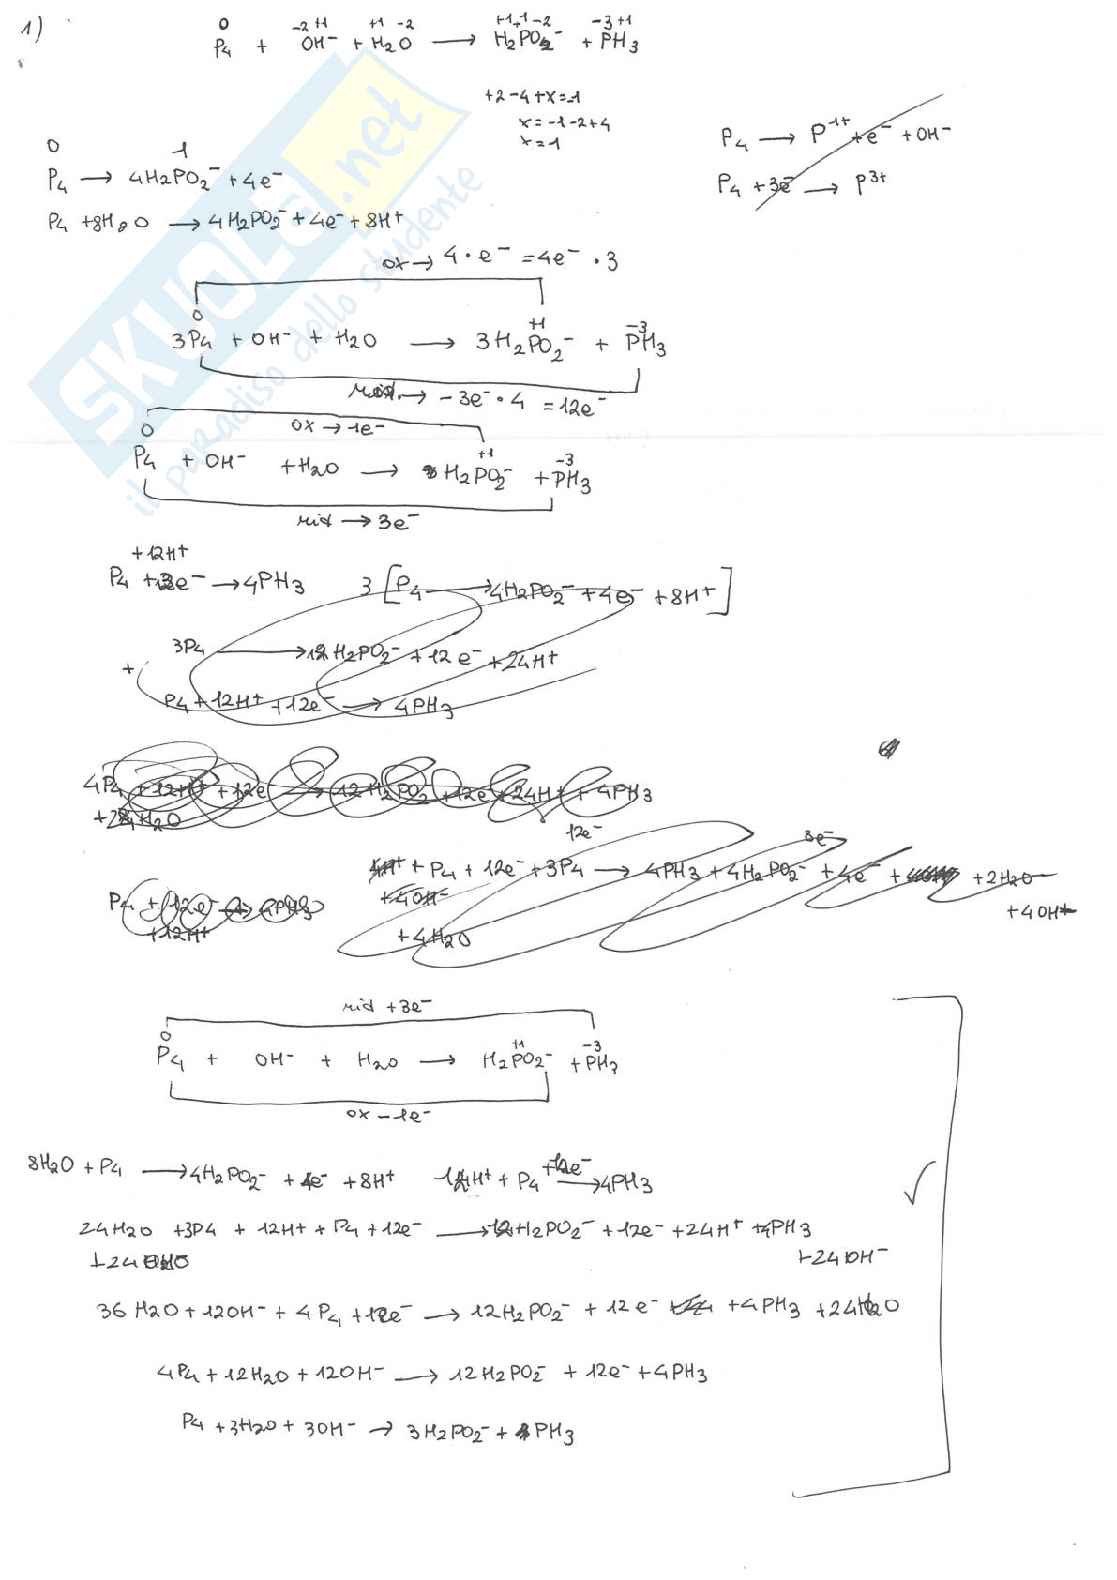 1)
0 -2 +1 +1 -2 +1+1-2 -3 +1
P4 + OH- + H2O → H2PO2- + PH3
+2-4+x=-1
x=-1-2+4
x=1
P4 → P-1+ +e- + OH-
P4 +3e- → P3+
0 -1
P4 → 4H2PO2- + 4e-
P4 + 8H2O → 4H2PO2- + 4e- + 8H+
ox → 4 · e- = 4e- · 3
0 +1 -3
3P4 + OH- + H2O → 3H2PO2- + PH3
rid. → -3e- · 4 = 12e-
ox → 1e-
0 +1 -3
P4 + OH- + H2O → H2PO2- + PH3
rid → 3e-
+12H+
P4 + e- → 4PH3 3 [P4 → 4H2PO2- + 4e- + 8H+]
3P4 → 12H2PO2- + 12e- + 24H+
+
P4 + 12H+ + 12e- → 4PH3
4P4 + 12H+ + 12e → 12H2PO2- + 12e + 24H+ + 4PH3
H2O
12e- 3e-
+ P4 + 12e- + 3P4 → 4PH3 + 4H2PO2- + 4e- + + 2H2O
+4OH- + 4OH-
+4H2O
P4 + 12e- → 4PH3
+12H+
rid +3e-
0 +1 -3
P4 + OH- + H2O → H2PO2- + PH3
ox -1e-
8H2O + P4 → 4H2PO2- + 4e- + 8H+ 12H+ + P4 +12e- → 4PH3
24H2O + 3P4 + 12H+ + P4 + 12e- → 12H2PO2- + 12e- + 24H+ + 4PH3
+24 +24OH-
36H2O + 12OH- + 4P4 + 12e- → 12H2PO2- + 12e- + 4PH3 + 24H2O
4P4 + 12H2O + 12OH- → 12H2PO2- + 12e- + 4PH3
P4 + 3H2O + 3OH- → 3H2PO2- + PH3
✓
SKUOLA.net
il paradiso dello studente